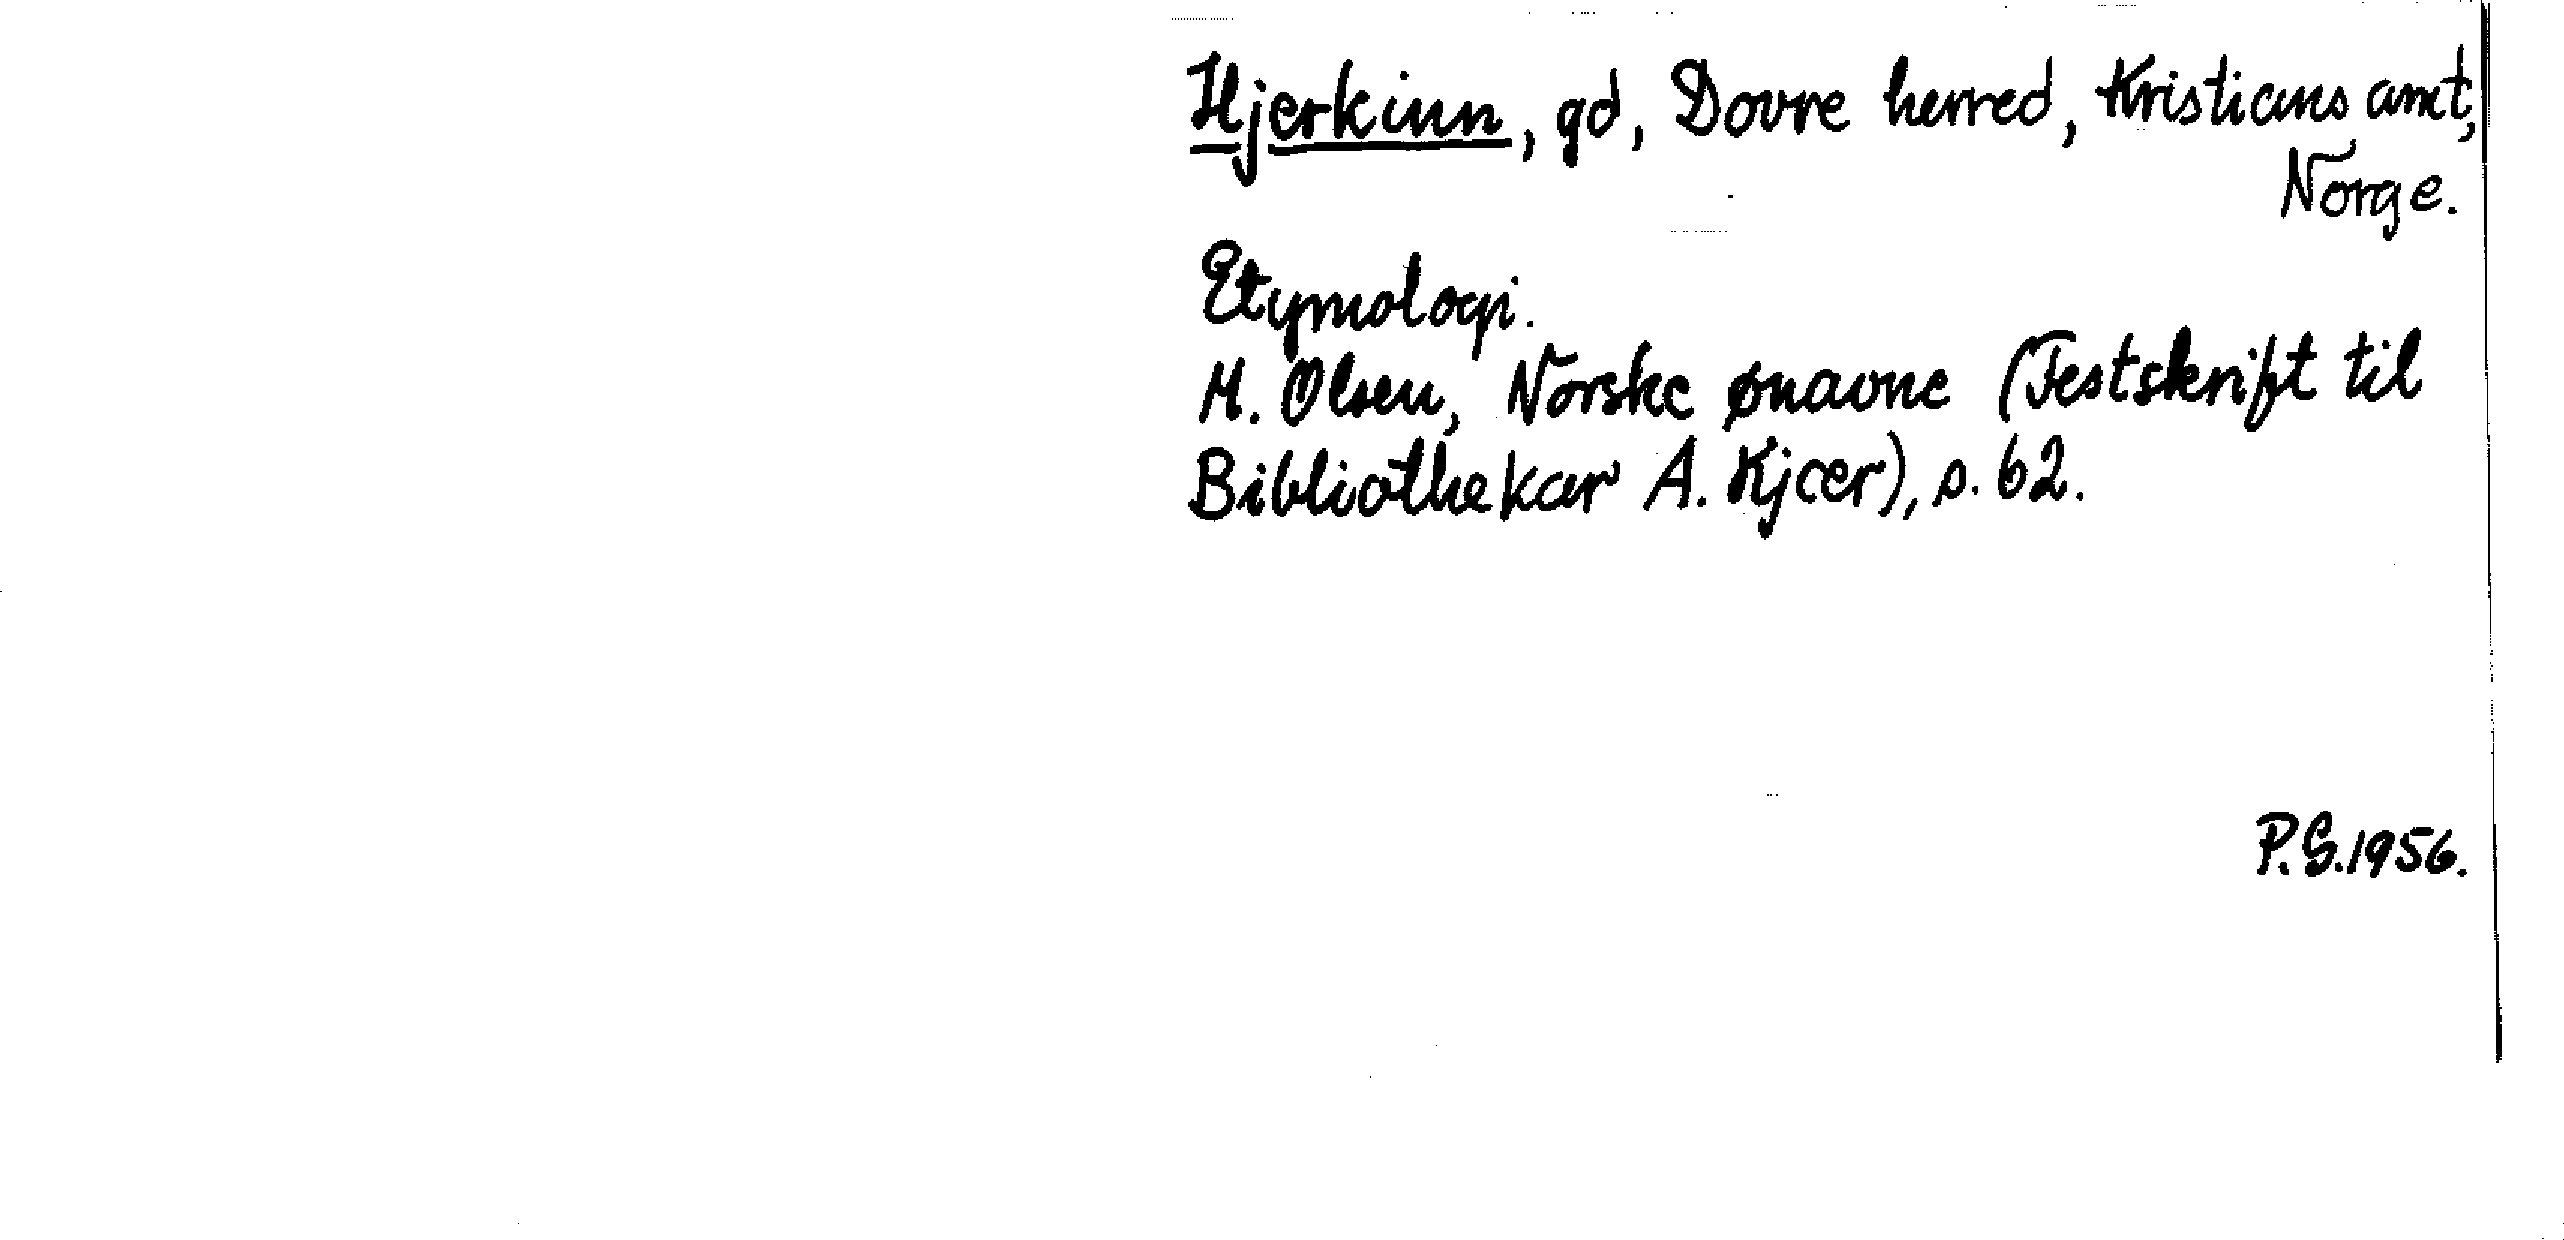 Hjerkinn, gd, Dovre herred, Kristians amt,
Norge.
Etymologi.
M. Olsen, Norske ønavne (Festskrift til
Bibliothekar A. Kjær), s. 62.
P.S. 1956.